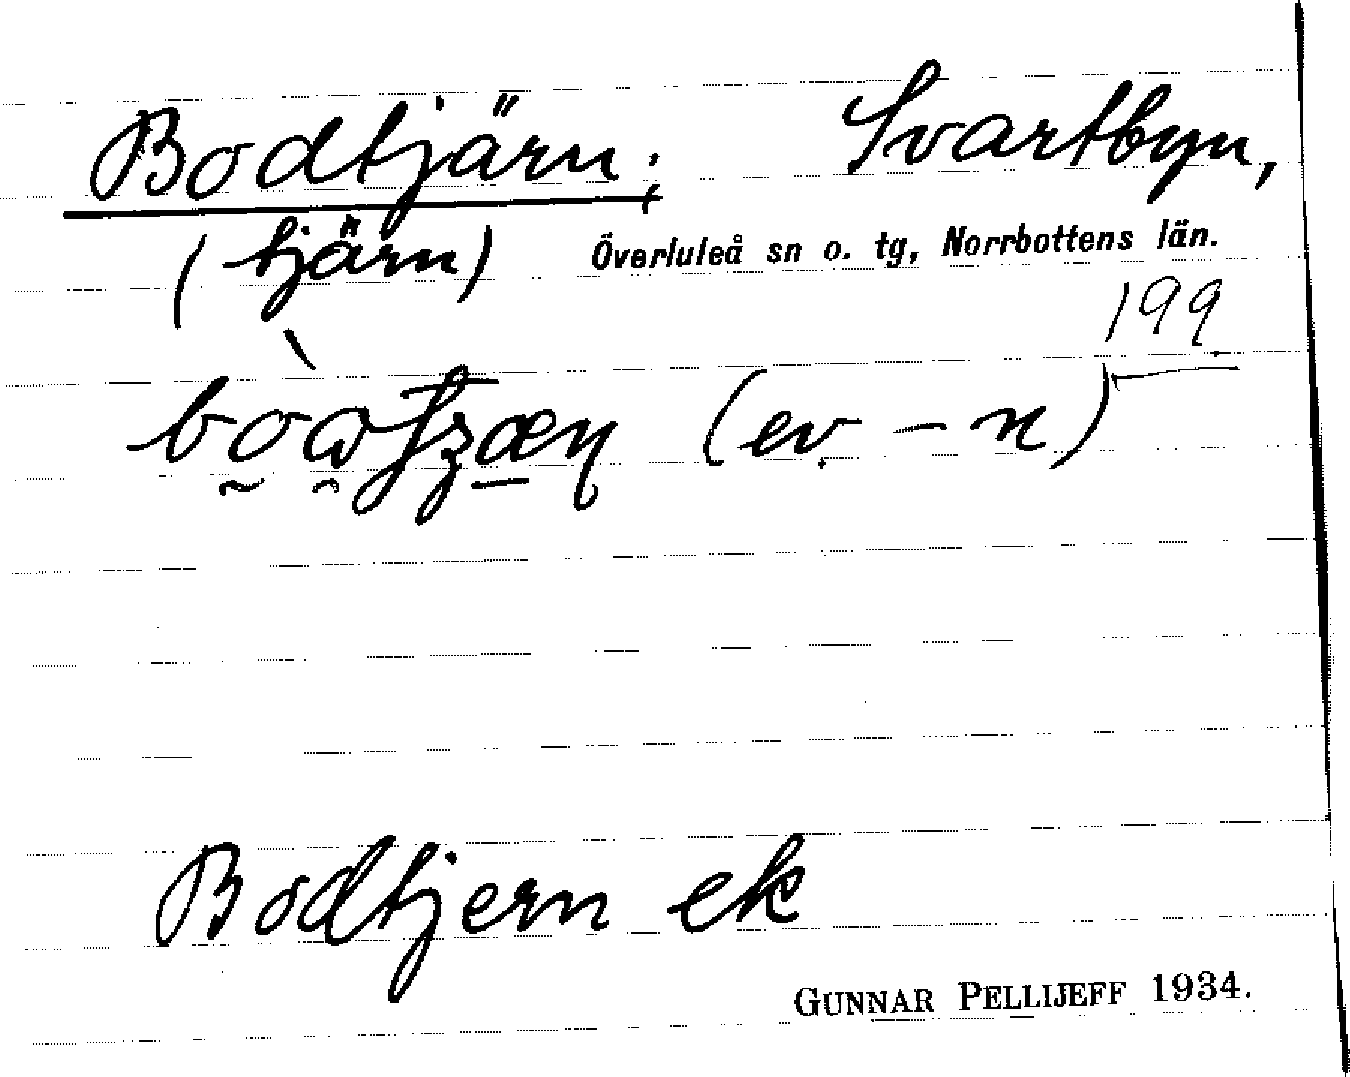 Bodtjärn; Svartbyn,
(tjärn) Överluleå sn o. tg, Norrbottens län.
199
(ev. – n)
Bodtjern ek
GUNNAR PELLIJEFF 1934.